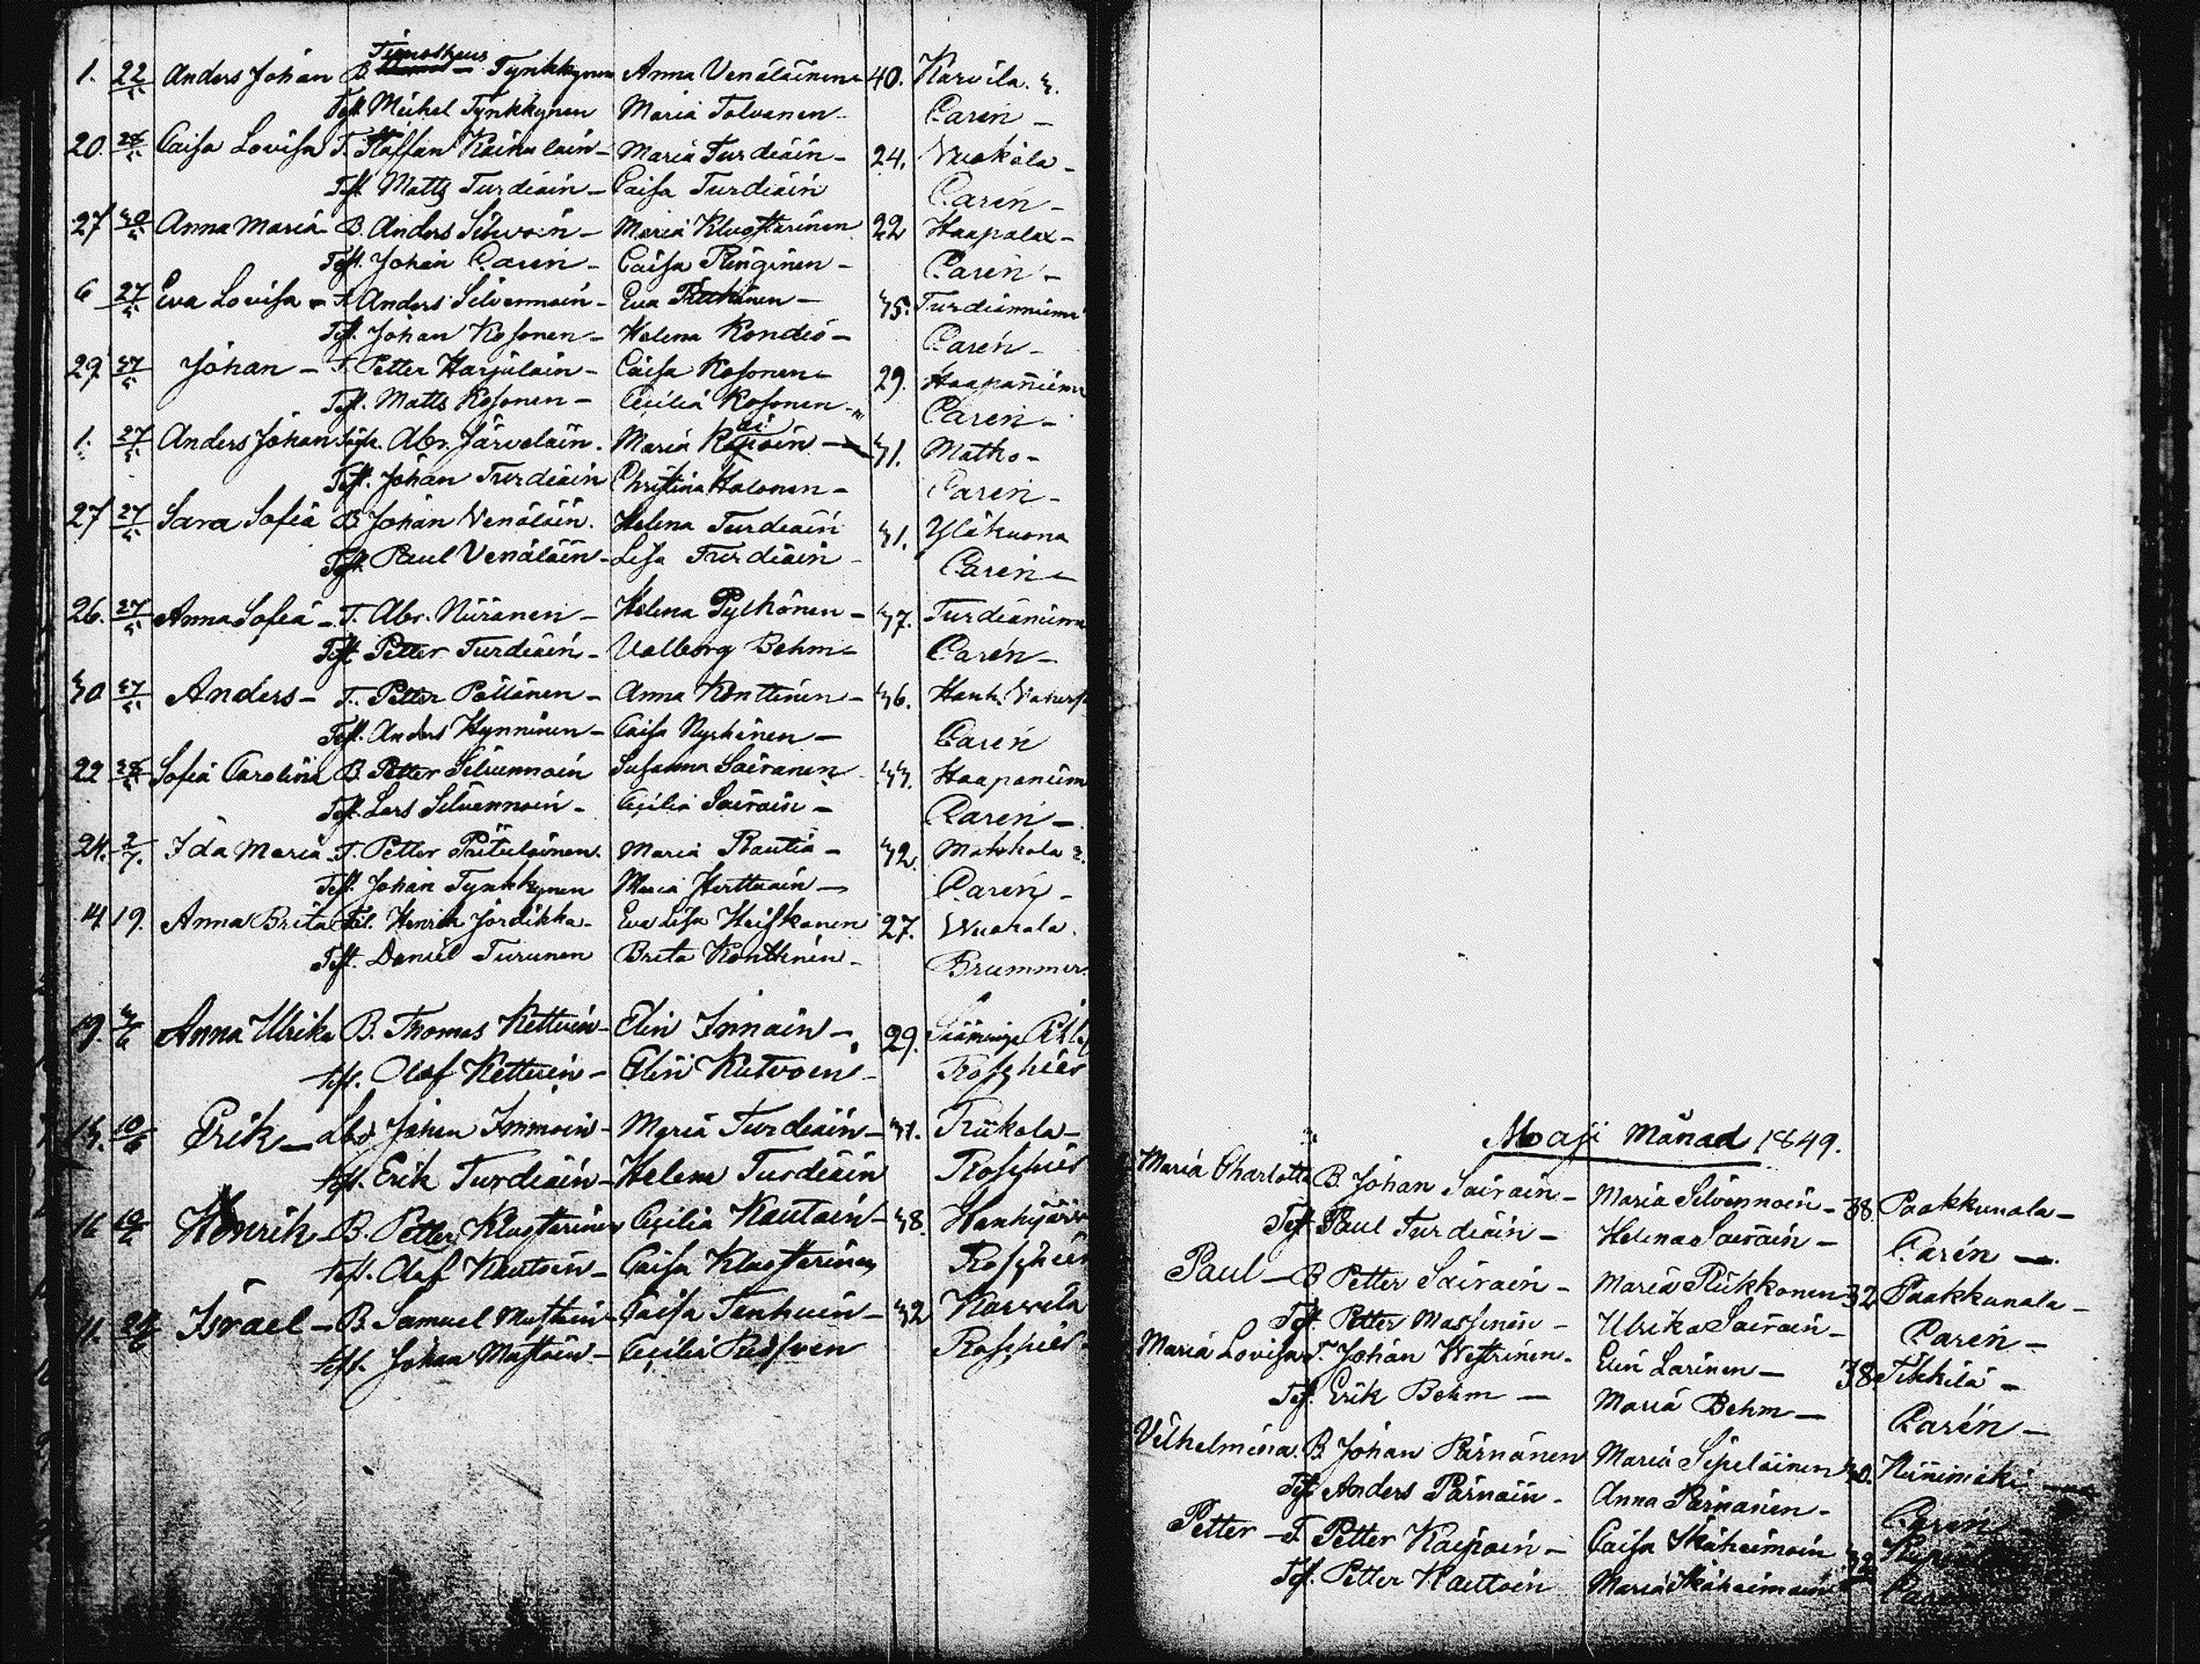 Timotheus
1. 22/5 Anders Johan B. Tynkkynen Anna Venäläinen 40. Karvila.
Test. Michel Tynkkynen Maria Tolvanen Carén
20. 28/5 Caisa Lovisa T. Staffan Kainulain Maria Turdiain 24. Vuokala
Test. Matts Turdiain Caisa Turdiain Carén
27 30/5 Anna Maria B. Anders Maria Klustarinen 22 Haapalax
Test. Johan Carén Caisa Ringinen Carén
6 27/5 Eva Lovisa T. Anders Silvennoin Eva 35. Turdianniemi
Test. Johan Kosonen Helena Kondio Carén
29 27/5 Johan T. Petter Harjulain Caisa Kosonen 29. Haapaniemi
Test. Matts Kosonen Cecilia Kosonen Carén
1. 27/5 Anders Johan Abr. Järveläin. Maria 31. Matho
Test. Johan Turdiain Christina Halonen Carén
27 27/5 Sara Sofia B. Johan Venäläin. Helena Turdiain 31. Yläkuona
Test. Paul Venäläin Lisa Turdiain Carén
26. 27/5 Anna Sofia T. Abr. Niiranen Helena Pylkönen 37. Turdianiemi
Test. Petter Turdiain Valborg Behm Carén
30 27/5 Anders T. Petter Pöllänen Anna Konttinen 36. Hank.
Test. Anders Hynninen Caisa Nyrhinen Carén
22 28/5 Sofia Carolina B. Petter Silvennoin Susanna Sairanen 33. Haapaniem
Test. Lars Silvennoin Cecilia Sairain Carén
24. 2/7. Ida Maria T. Petter Pritulainen. Maria Rautia 32. Makkola
Test. Johan Tynkkynen Maria Herttuain Carén
14 19. Anna Brita Henrik Jordikka Eva Lisa Heiskanen 27. Vuorala.
Test. Daniel Turunen Brita Konttinen Brummer.
19. 3/6 Anna Ulrika B. Thomas Kettuin Elin Immoin 29. Sääminge
test. Olof Kettuin Elin Kutvoin Roschier
13. 10/6 Erik Johan Immoin Maria Turdiain 31. Riikola
test. Erik Turdiain Helena Turdiain Roschier
16 10/6 Henrik B. Petter Klustarinen Cecilia Kautoin 38. Hankijärvi
test. Olof Kautoin Caisa Klustarinen Roschier
11. 24/6 Israel B. Samuel Mustoin Caisa Tenhuin 32 Karvila
test. Johan Mustoin Cecilia Roschier
Maji Månad 1849.
Maria Charlotta B. Johan Sairain Maria Silvennoin 38. Paakkunala
Test. Paul Turdiain Helena Sairain Carén
Paul B Petter Sairain Maria Riikkonen 32 Paakkunala
Test. Petter Massinen Ulrika Sairain Carén
Maria Lovisa T. Johan Westrinen. Elin Larinen 38. Tikkilä
Test. Erik Behm Maria Behm Carén
Vilhelmina. B. Johan Pärnänen Maria Sipeläinen 30. Niinimäki
Test. Anders Pärnäin. Anna Pärnänen Carén
Petter T. Petter Kaipain Caisa Ikäheimoin
Test. Petter Kautoin Maria Ikäheimoin